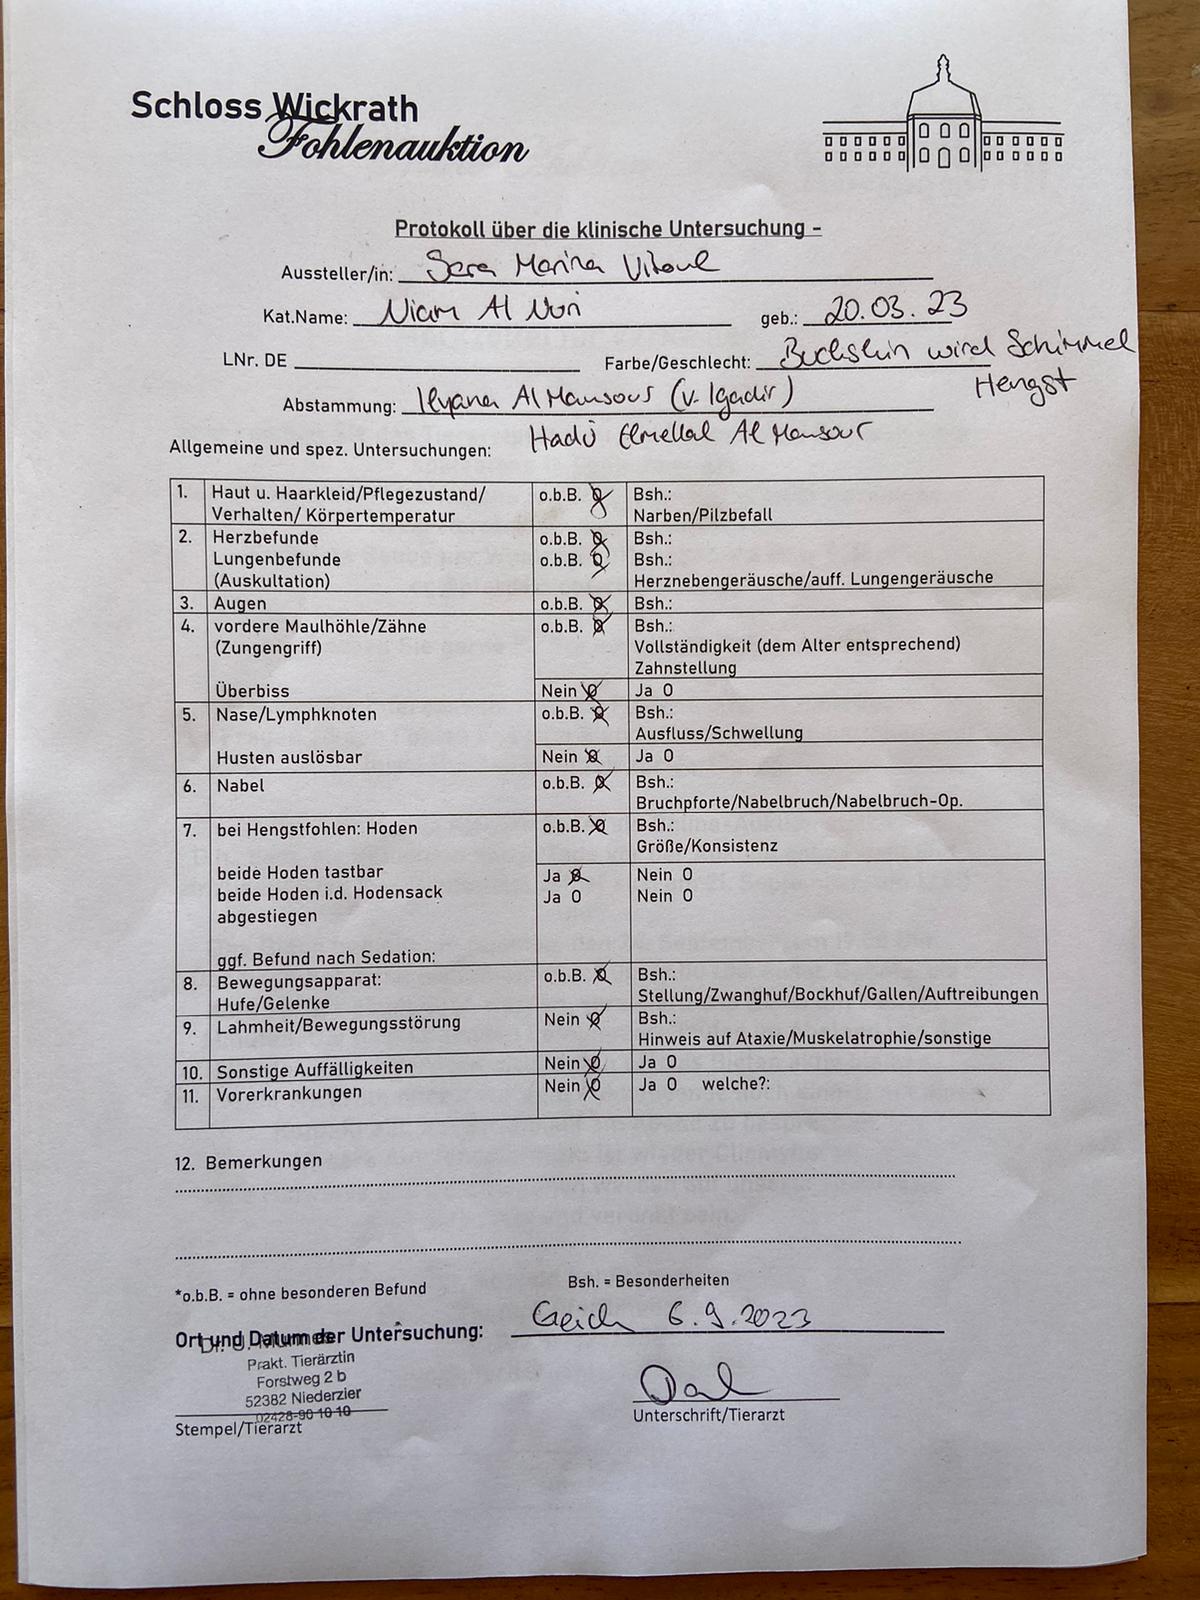 Schloss Wickrath
Fohlenauktion
Protokoll über die klinische Untersuchung -
Aussteller/in: Sara Marina
Kat.Name: Niam Al Nuri geb.: 20.03.23
LNr. DE Farbe/Geschlecht: Buckskin wird Schimmel
Hengst
Abstammung: Ilyana Al Mansour (v. Igadir)
Allgemeine und spez. Untersuchungen: Hadü Elmellal Al Mansour
1. Haut u. Haarkleid/Pflegezustand/ o.b.B. 0 Bsh.:
Verhalten/ Körpertemperatur Narben/Pilzbefall
2. Herzbefunde o.b.B. 0 Bsh.:
Lungenbefunde o.b.B. 0 Bsh.:
(Auskultation) Herznebengeräusche/auff. Lungengeräusche
3. Augen o.b.B. 0 Bsh.:
4. vordere Maulhöhle/Zähne o.b.B. 0 Bsh.:
(Zungengriff) Vollständigkeit (dem Alter entsprechend)
Zahnstellung
Überbiss Nein 0 Ja 0
5. Nase/Lymphknoten o.b.B. 0 Bsh.:
Ausfluss/Schwellung
Husten auslösbar Nein 0 Ja 0
6. Nabel o.b.B. 0 Bsh.:
Bruchpforte/Nabelbruch/Nabelbruch-Op.
7. bei Hengstfohlen: Hoden o.b.B. 0 Bsh.:
Größe/Konsistenz
beide Hoden tastbar Ja 0 Nein 0
beide Hoden i.d. Hodensack Ja 0 Nein 0
abgestiegen
ggf. Befund nach Sedation:
8. Bewegungsapparat: o.b.B. 0 Bsh.:
Hufe/Gelenke Stellung/Zwanghuf/Bockhuf/Gallen/Auftreibungen
9. Lahmheit/Bewegungsstörung Nein 0 Bsh.:
Hinweis auf Ataxie/Muskelatrophie/sonstige
10. Sonstige Auffälligkeiten Nein 0 Ja 0
11. Vorerkrankungen Nein 0 Ja 0 welche?:
12. Bemerkungen
*o.b.B. = ohne besonderen Befund Bsh. = Besonderheiten
Ort und Datum der Untersuchung: 6.9.2023
Prakt. Tierärztin
Forstweg 2 b
52382 Niederzier
02428-90 10 10
Stempel/Tierarzt Unterschrift/Tierarzt